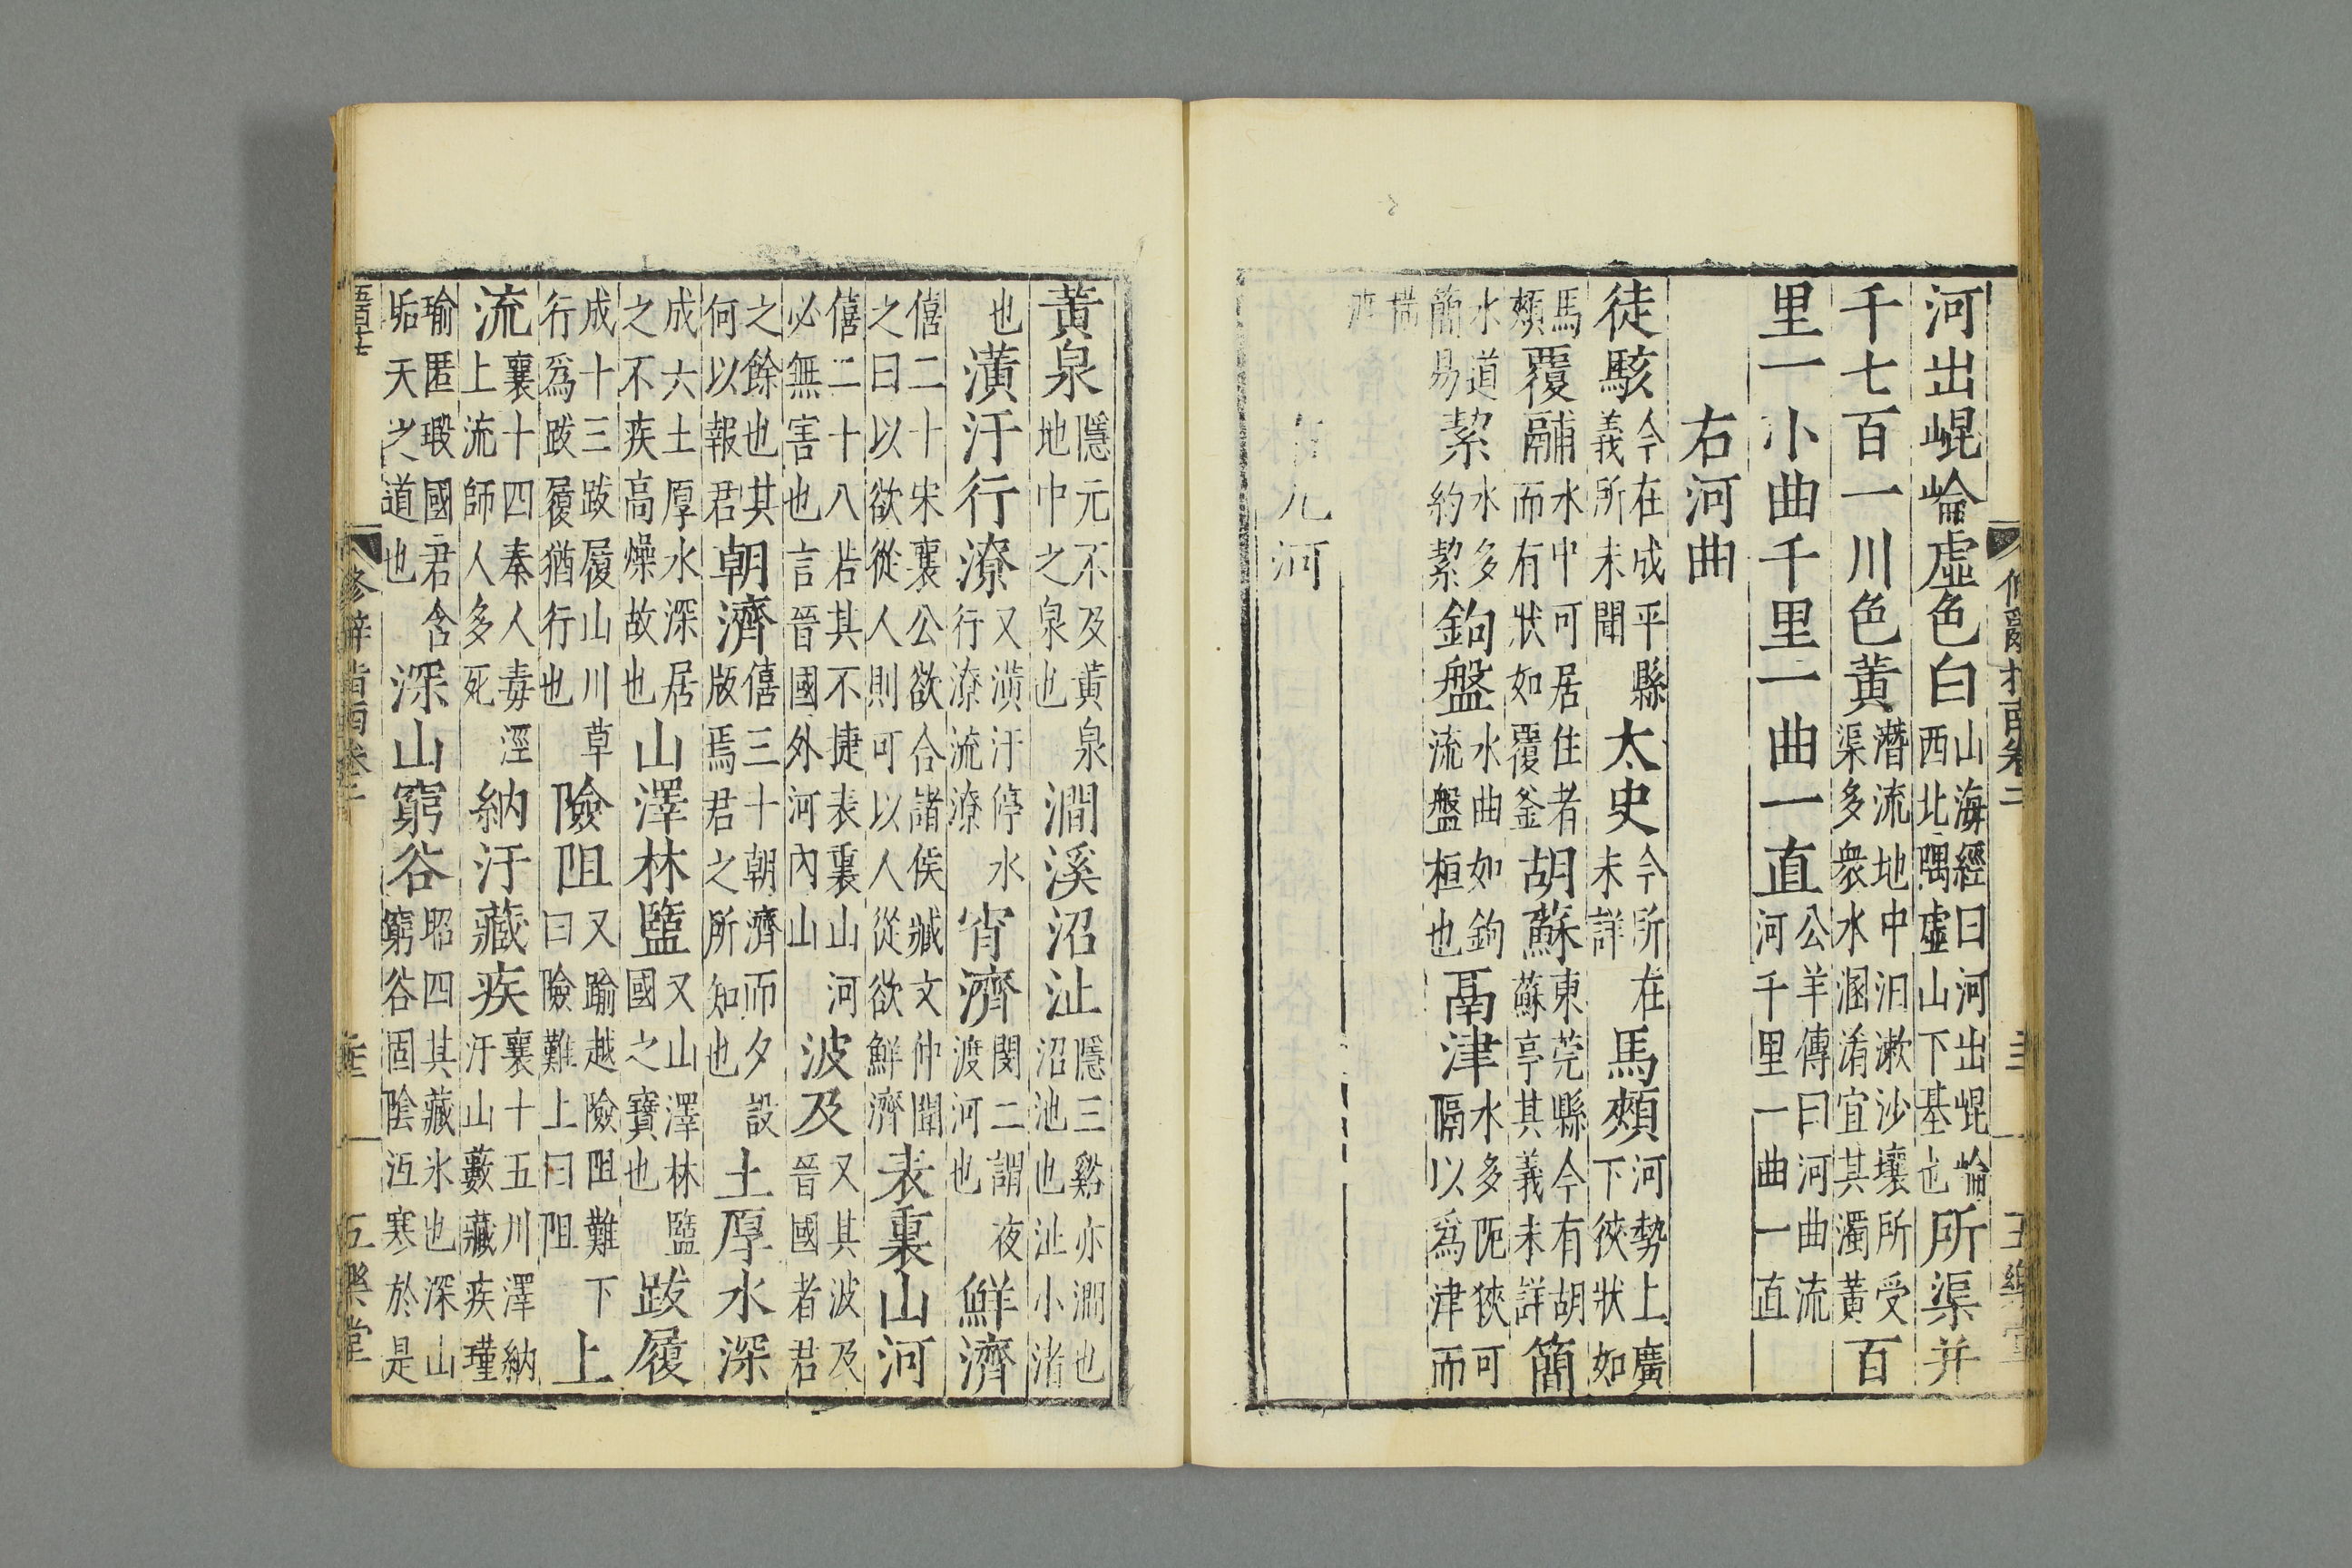 河出崐崘虛色白山海經曰河出崐崘西北隅虛山下基也所渠并
千七百一川色黃潛流地中汨漱沙壤所受渠多衆水溷淆宜其濁黃百
里一小曲千里一曲一直公羊傳曰河曲流河千里一曲一直
右河曲
徒駭今在成平縣義所未聞太史今所在未詳馬頰河勢上廣下狹狀如
馬頰覆鬴水中可居住者而有狀如覆釜胡蘇東莞縣今有胡蘇亭其義未詳簡
水道簡易絜水多約絜鉤盤水曲如鉤流盤桓也鬲津水多阨狹可隔以爲津而
元河
黃泉隱元不及黃泉地中之泉也澗溪沼沚隱三谿亦澗也沼池也沚小渚
也潢汙行潦又潢汙停水行潦流潦宵濟閔二謂夜渡河也鮮濟
僖二十宋襄公欲合諸侯臧文仲聞之曰以欲從人則可以人從欲鮮濟表裏山河
僖二十八若其不捷表裏山河必無害也言晉國外河內山波及又其波及晉國者君
之餘也其何以報君朝濟僖三十朝濟而夕設版焉君之所知也土厚水深
成六土厚水深居之不疾高燥故也山澤林盬又山澤林盬國之寶也跋履
成十三跋履山川草行爲跋履猶行也險阻又踰越險阻難下曰險難上曰阻上
流襄十四秦人毒涇上流師人多死納汙藏疾襄十五川澤納汙山藪藏疾瑾
瑜匿瑕國君含垢天之道也深山窮谷昭四其藏氷也深山窮谷固陰沍寒於是
修辭指南卷二
五樂堂